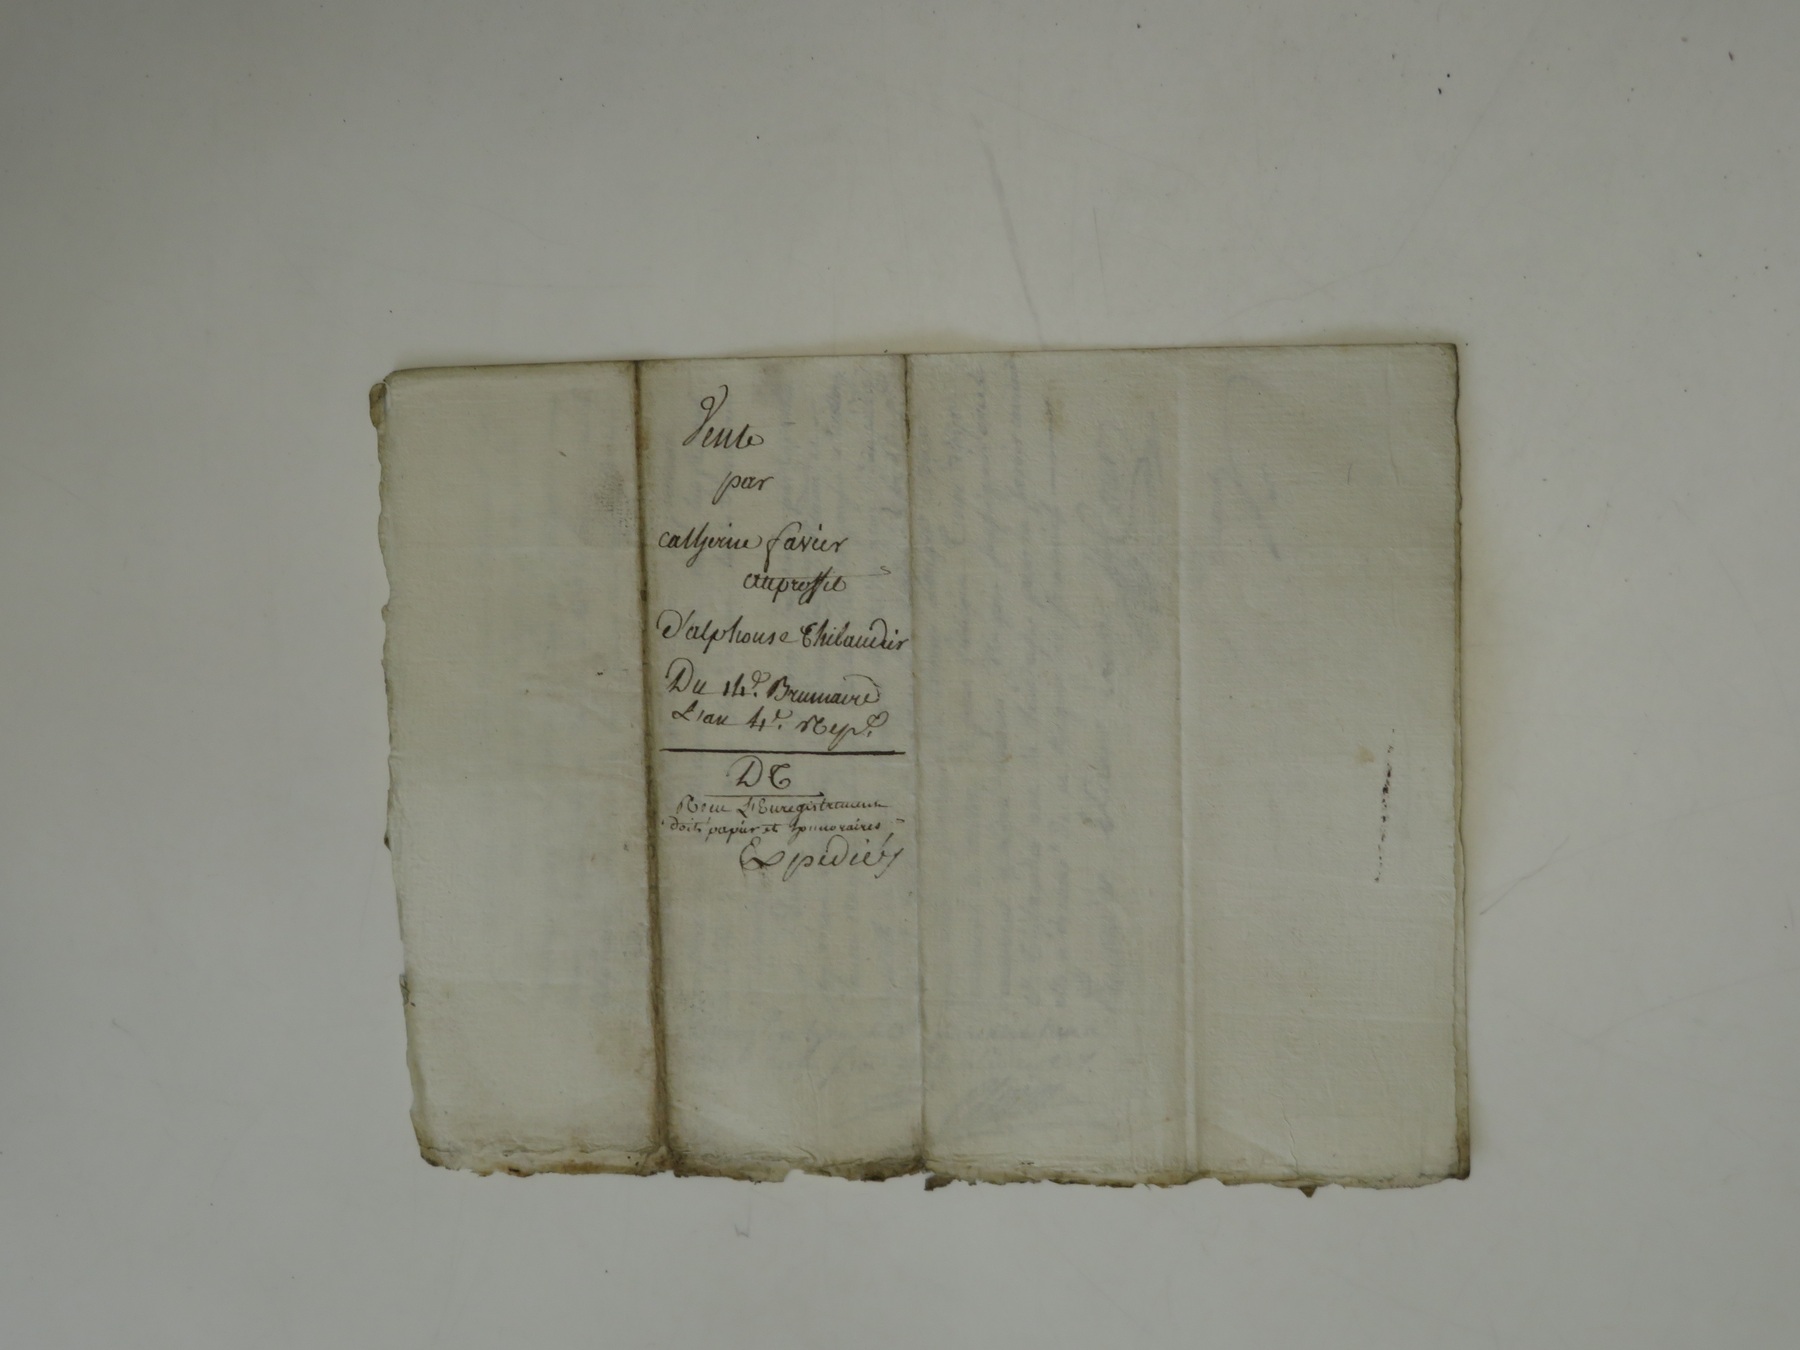 Vente
par
catherine favier
au proffit
d'alphonse Thibaudier
Du 14e. Brumaire
L'an 4e. Rep.e
DC
Reçu L'Enregistrement
doit papier et honnoraires
Expédiés